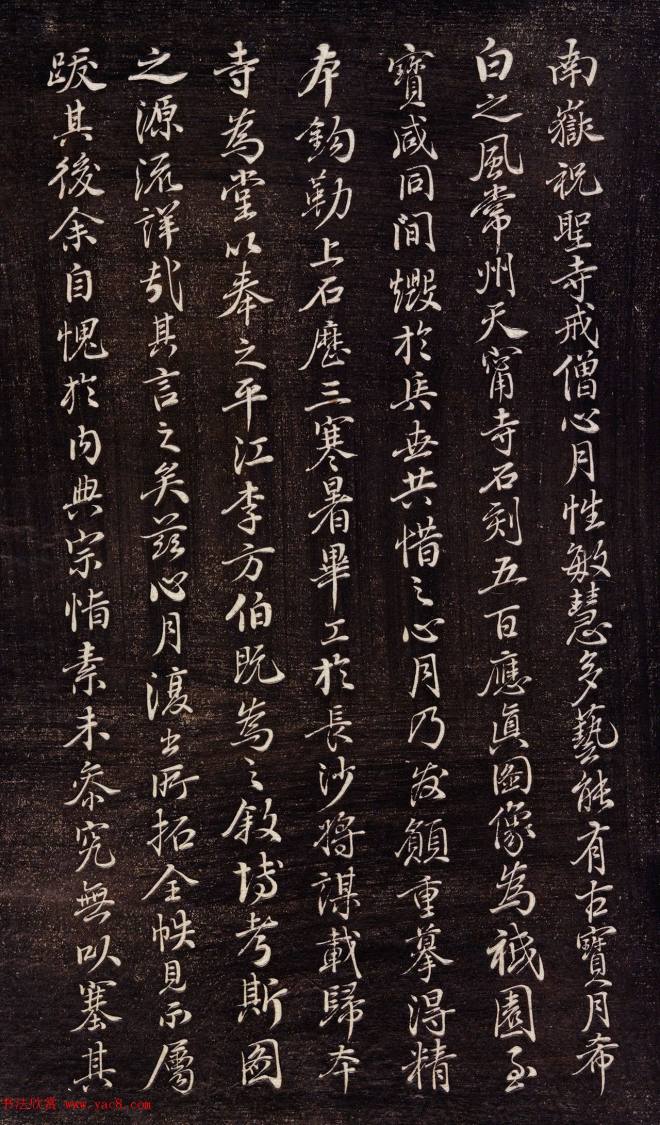 南嶽祝聖寺戒僧心月性敏慧多藝能有古寶月希
白之風常州天甯寺石刻五百應真圖像為祇園至
寶咸同間燬於兵世共惜之心月乃發願重摹得精
本鉤勒上石歷三寒暑畢工於長沙將謀載歸本
寺為堂以奉之平江李方伯既為之敘博考斯圖
之源流詳哉其言之矣茲心月復出所拓全帙見示屬
跋其後余自愧於內典宗恉素未參究無以塞其
书法欣赏 www.yac8.com